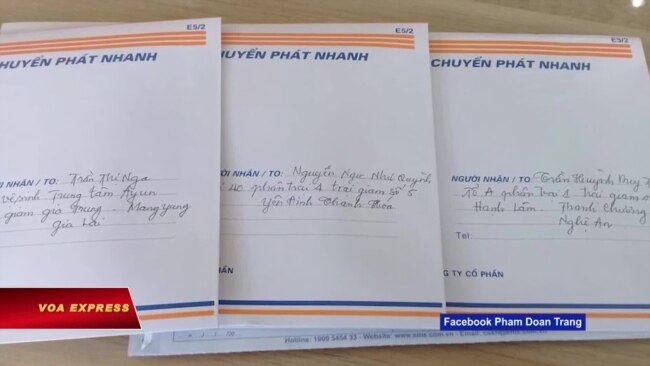 E5/2
CHUYỂN PHÁT NHANH
NHẬN / TO: Trần Thị Nga
vệ sinh Trung tâm Ayun
giam gia Trung - Mang yang
Gia Lai
PHẦN
E5/2
CHUYỂN PHÁT NHANH
NGƯỜI NHẬN / TO: Nguyễn Ngọc Như Quỳnh
40 phân trại 4 trại giam số 5
Yên Định Thanh Hóa
E5/2
CHUYỂN PHÁT NHANH
NGƯỜI NHẬN / TO: Trần Huỳnh Duy
Tổ A phân trại 1 trại giam
Hạnh Lâm - Thanh Chương
Nghệ An
Tel:
TY CỔ PHẦN
Hotline: 1900 5454 33 - Website: www.ems.com.vn - Email:
VOA EXPRESS
Facebook Pham Doan Trang